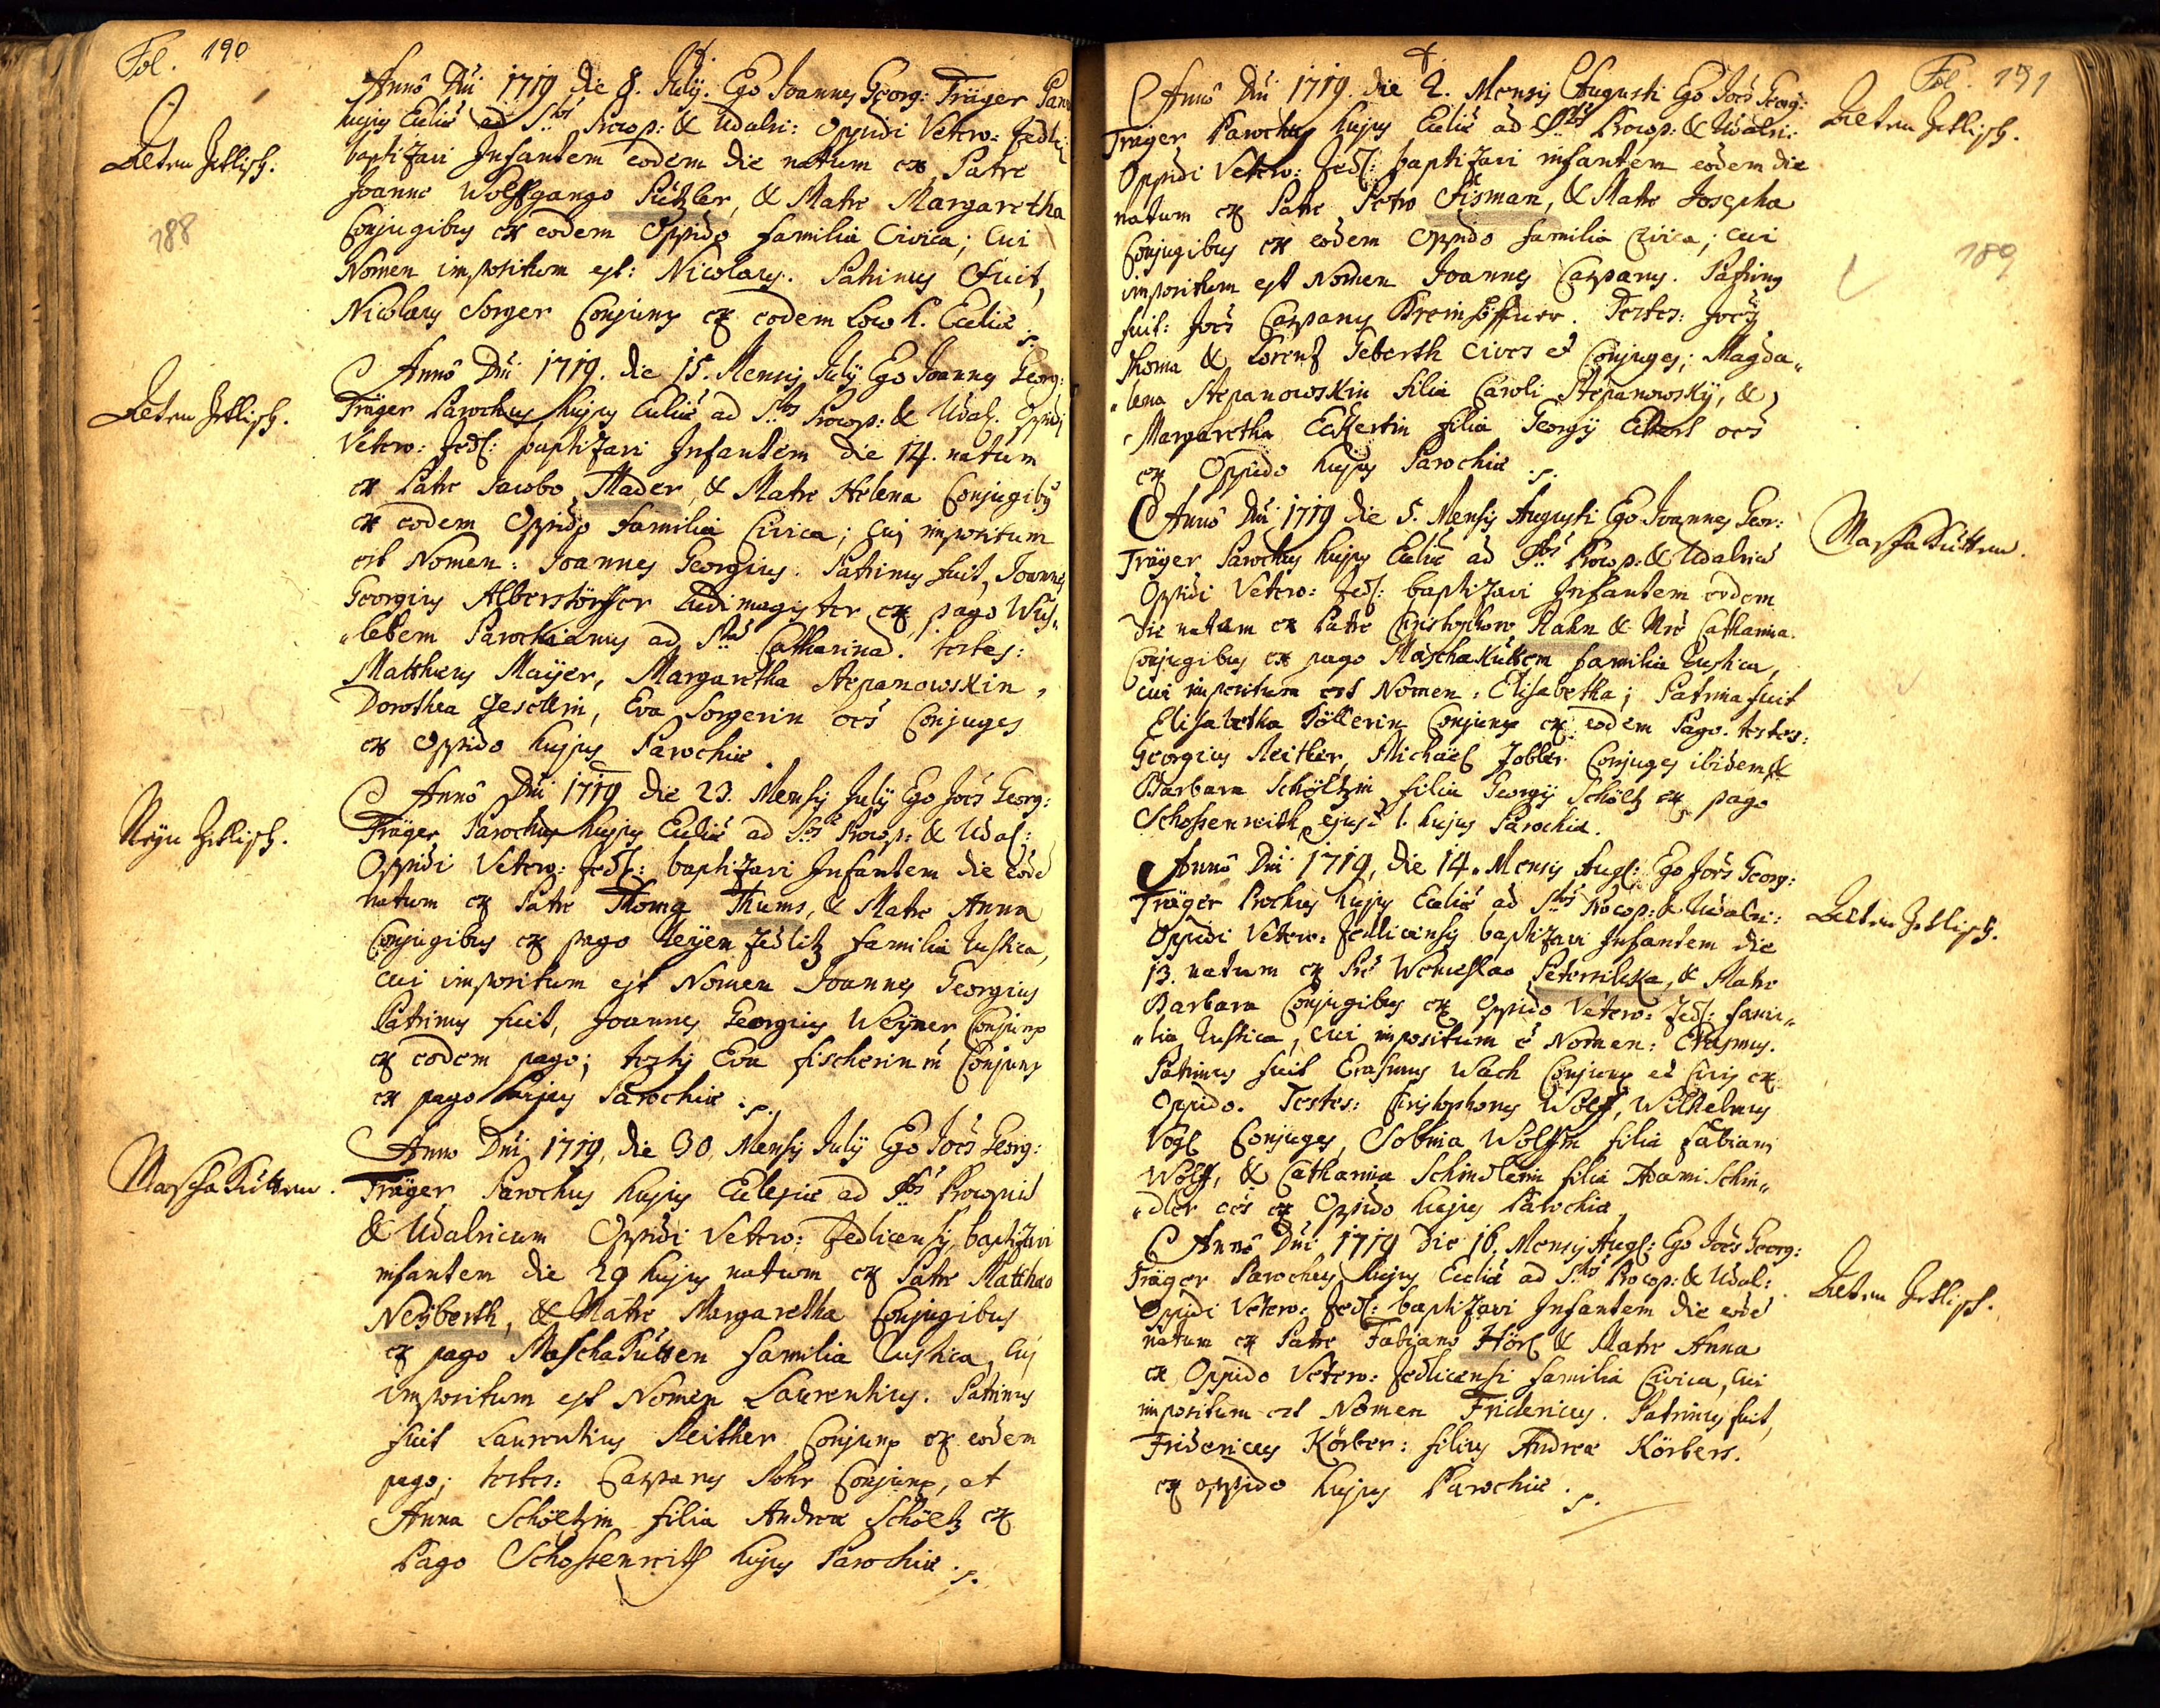 Fol. 190
Alten Zetlisch.
188
Annô Dni 1719 die 8. July. Ego Joannes Georg: Träger Paro
hujus Eccliae ad Stos Procop: & Udalri: Oppidi Vetero: Zedli:
baptizavi Infantem eodem die natum ex Patre
Joanne Wolffgango Pützler, & Matre Margaretha
Conjugibus ex eodem Oppido familia Civica; cui
Nomen impositum est: Nicolaus. Patrinus fuit,
Nicolaus Sorger Conjunx ex eodem loco h. Eccliae
Alten Zetlisch.
Annô Dni 1719. die 15. Mensis July Ego Joannes Georg:
Träger Parochus hujus Eccliae ad Stos Procop: & Udal: Oppidi
Vetero: Zedl: baptizavi Infantem die 14. natum
ex Patre Jacobo Mader, & Matre Helena Conjugibus
ex eodem Oppido familia Civica; cuj impositum
est Nomen: Joannes Georgius. Patrinus fuit, Joannes
Georgius Alberstörffer Ludimagister ex pago Wit„
„lebem Parochianus ad Stae Catharinae. testes:
Matthaeus Maÿer, Margaretha Stepanowskin,
Dorothea Gesellin, Eva Sorgerin oēs Conjuges
ex Oppido hujus Parochiae.
Neÿn Zetlisch.
Annô Dni 1719 die 23. Mensis July Ego Joēs Georg:
Träger Parochus hujus Eccliae ad Stos Procop: & Udal:
Oppidi Vetero: Zedl: baptizavi Infantem die eode
natum ex Patre Thoma Thums, & Matre Anna
Conjugibus ex pago Neÿen Zedlitz familia Rustica,
cui impositum est Nomen Joannes Georgius
Patrinus fuit, Joannes Georgius Weÿner Conjunx
ex eodem pago; testis Eva fischerin Conjunx
ex pago hujus Parochiae.
MaschaKütten.
Anno Dni 1719, die 30. Mensis July Ego Joēs Georg:
Träger Parochus hujus Eclesiae ad Stos Procopiu
& Udalricum Oppidi Vetero: Zedlicensis, baptizavi
infantem die 29 hujus natum ex Patre Matthaeo
Neÿberth, & Matre Margaretha Conjugibus
ex pago MaschaKütten familia Rustica, cuj
impositum est Nomen Laurentius. Patrinus
fuit Laurentius Reither Conjunx ex eodem
pago; testes: Casparus Rohr Conjunx, et
Anna Schöltzin filia Andreae Schöltz ex
Pago Schossenreith hujus Parochiae.
Fol. 191
Alten Zetlisch.
189
Annô Dni 1719. die 2. Mensis Augusti Ego Joēs Georg:
Träger Parochus hujus Eccliae ad Stos Procop: & Udalri:
Oppidi Vetero: Zedl: baptizavi infantem eodem die
natum ex Patre Petro Fisman, & Matre Josepha
Conjugibus ex eodem Oppido familia Civica; cui
impositum est Nomen Joannes Casparus. Patrinus
fuit: Joēs Casparus Kreinhöffner. Testes: Joēs
Thoma & Lorentz Geberth Cives et Conjuges; Magda„
„lena Stepanowskin filia Caroli Stepanowskÿ, &
Margaretha Eckertin filia Georgÿ Eckert oēs
ex Oppido hujus Parochiae.
MaschaKütten.
Annô Dni 1719 die 5. Mensis Augusti Ego Joannes Geor:
Träger Parochus hujus Eccliae ad Stos Procop: & Udalricu
Oppidi Vetero: Zedl: baptizavi Infantem eodem
die natam ex Patre Christophoro Hahn & Mre Catharina
Conjugibus ex pago MaschaKütten familia Rustica,
cui impositum est Nomen: Elisabetha; Patrina fuit
Elisabetha Söllerin Conjunx ex eodem Pago. testes:
Georgius Reither, Michaël Zobler Conjuges ibidem &
Barbara Schöltzin filia Georgÿ Schöltz ex pago
Schossenreith ejusd. hujus Parochiae.
Alten Zetlisch.
Annô Dni 1719, die 14. Mensis Aug: Ego Joēs Georg:
Träger Prochus hujus Eccliae ad Stos Procop: & Udalri:
Oppidi Vetero: Zedlicensis baptizavi Infantem die
13. natum ex Pre Wenceslao Petermilcka, & Matre
Barbara Conjugibus ex Oppido Vetero: Zedl: fami„
„lia Rustica, cui impositum ē Nomen: Erasmus.
Patrinus fuit Erasmus Wach Conjunx et Civis ex
Oppido. Testes: Christophorus Wolff, Wilhelmus
Vogl Conjuges, Sobina Wolffin filia Fabiani
Wolff, & Catharina Schindlerin filia Adami Schin„
„dler oēs ex Oppido hujus Parochiae
Alten Zetlisch.
Annô Dni 1719 die 16. Mensis Aug: Ego Joēs Georg:
Träger Parochus hujus Eccliae ad Stos Procop: & Udal:
Oppidi Vetero: Zedl: baptizavi Infantem die eode
natum ex Patre Fabiano Hörl & Matre Anna
ex Oppido Vetero: Zedlicensi familia Civica, cui
impositum est Nomen Fridericus. Patrinus fuit,
Fridericus Körber: filius Andreae Körbers.
ex oppido hujus Parochiae.